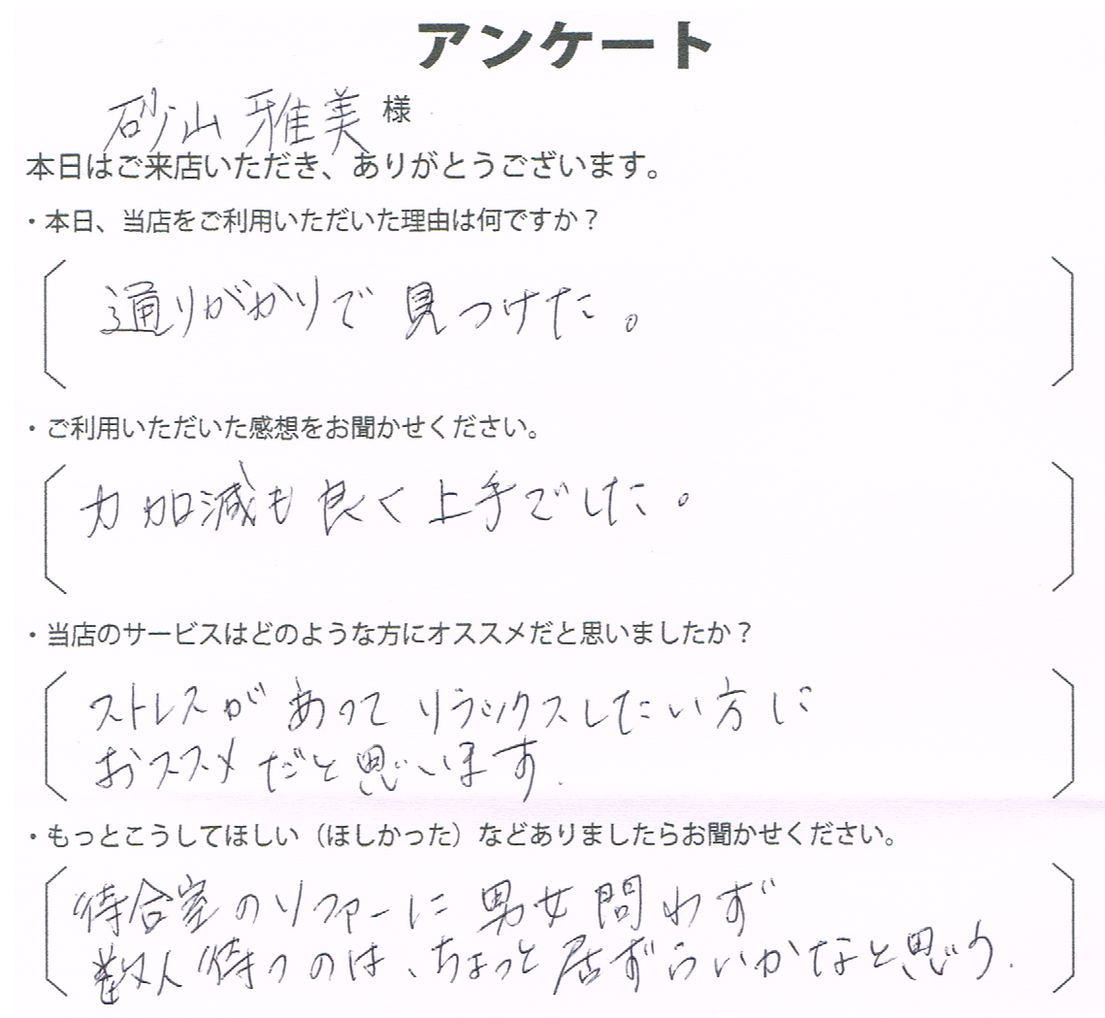 アンケート
砂山 雅美 様
本日はご来店いただき、ありがとうございます。
・本日、当店をご利用いただいた理由は何ですか？
通りがかりで 見つけた。
・ご利用いただいた感想をお聞かせください。
力加減も良く上手でした。
・当店のサービスはどのような方にオススメだと思いましたか？
ストレスがあってリラックスしたい方に
おススメだと思います.
・もっとこうしてほしい（ほしかった）などありましたらお聞かせください。
待合室のソファーに男女問わず
数人待つのは、ちょっと居ずらいかなと思う.